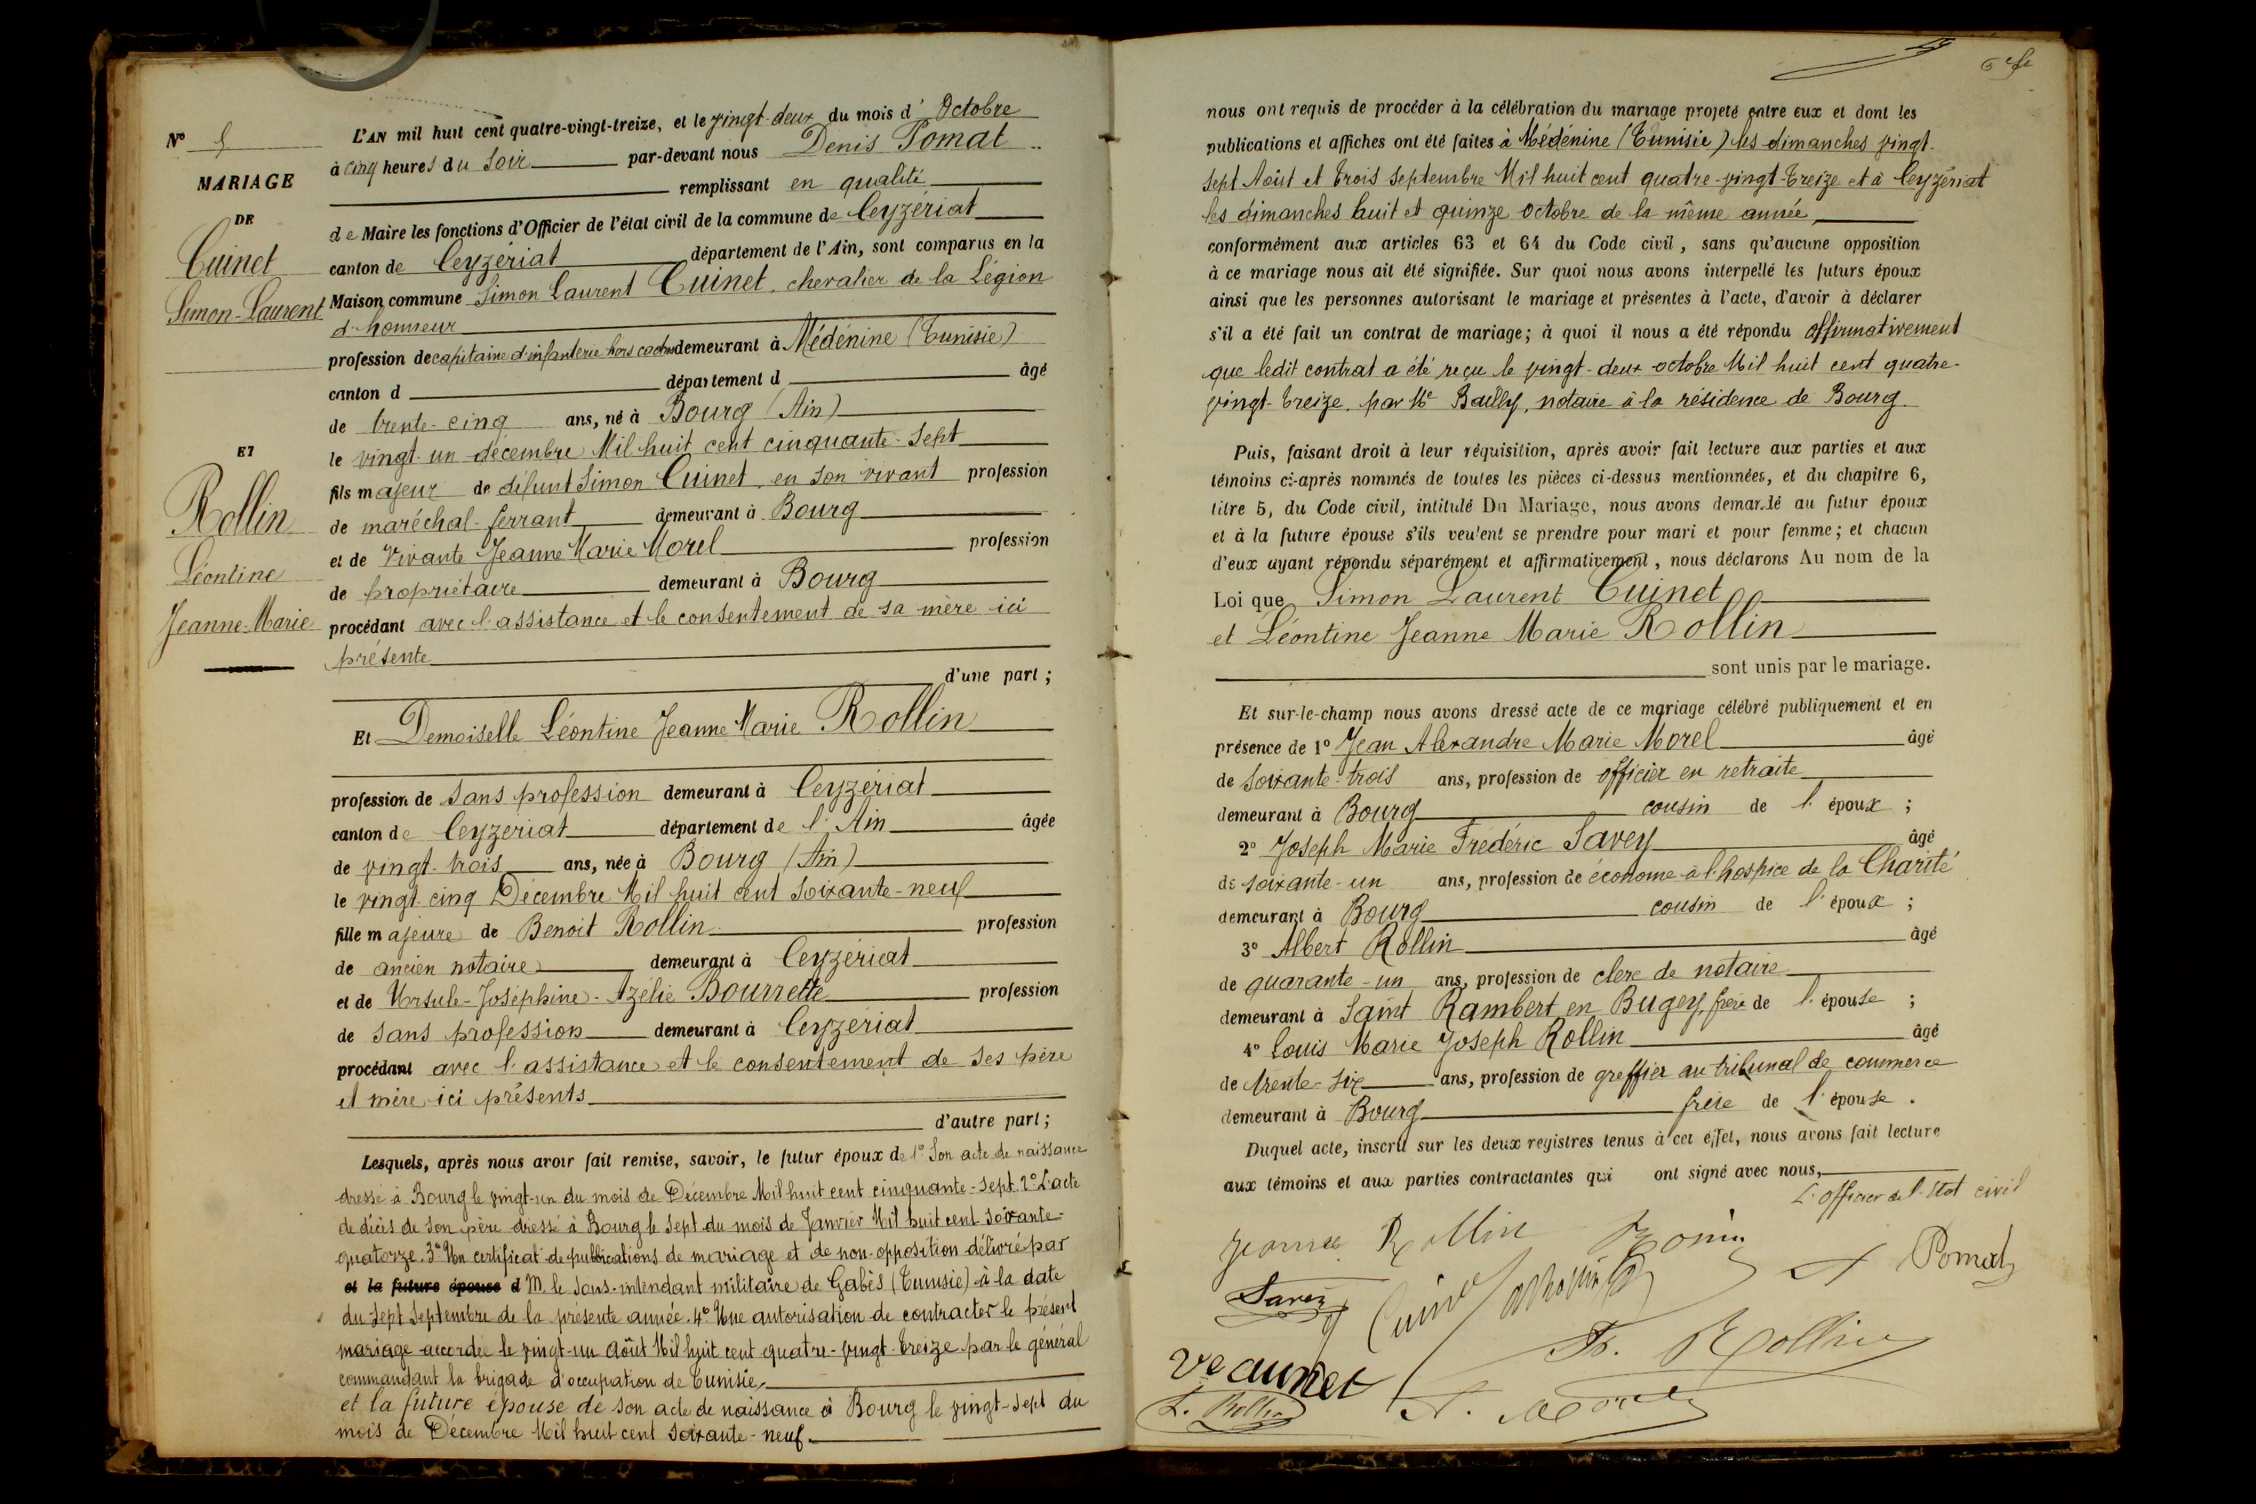 N° 5
MARIAGE
DE
Cuinet
Simon-Laurent
ET
Rollin
Léontine
Jeanne-Marie
L'AN mil huit cent quatre-vingt-treize, et le vingt-deux du mois d' Octobre
à cinq heures du soir par-devant nous Denis Pomat
remplissant en qualité
de Maire les fonctions d'Officier de l'état civil de la commune de Ceyzériat
canton de Ceyzériat département de l'Ain, sont comparus en la
Maison commune Simon Laurent Cuinet, chevalier de la Légion
d'honneur
profession de capitaine d'infanterie hors cadres demeurant à Médénine (Tunisie)
canton d département d âgé
de trente-cinq ans, né à Bourg (Ain)
le vingt-un décembre Mil huit cent cinquante-sept
fils majeur de défunt Simon Cuinet, en son vivant profession
de maréchal-ferrant demeurant à Bourg
et de vivante Jeanne Marie Morel profession
de propriétaire demeurant à Bourg
procédant avec l'assistance et le consentement de sa mère ici
présente
d'une part ;
Et Demoiselle Léontine Jeanne Marie Rollin
profession de sans profession demeurant à Ceyzériat
canton de Ceyzériat département de l'Ain âgée
de vingt-trois ans, née à Bourg (Ain)
le vingt-cinq Décembre Mil huit cent soixante-neuf
fille majeure de Benoit Rollin profession
de ancien notaire demeurant à Ceyzériat
et de Ursule-Joséphine-Azélie Bourrette profession
de sans profession demeurant à Ceyzériat
procédant avec l'assistance et le consentement de ses père
et mère ici présents
d'autre part ;
Lesquels, après nous avoir fait remise, savoir, le futur époux de 1° Son acte de naissance
dressé à Bourg le vingt-un du mois de Décembre Mil huit cent cinquante-sept. 2° L'acte
de décès de son père dressé à Bourg le sept du mois de Janvier Mil huit cent soixante-
quatorze. 3° Un certificat de publications de mariage et de non-opposition délivré par
et la future épouse d M. le sous-intendant militaire de Gabès (Tunisie) à la date
du sept Septembre de la présente année. 4° Une autorisation de contracter le présent
mariage accordée le vingt-un Août Mil huit cent quatre-vingt-treize par le général
commandant la brigade d'occupation de Tunisie,
et la future épouse de son acte de naissance à Bourg le vingt-sept du
mois de Décembre Mil huit cent soixante-neuf
nous ont requis de procéder à la célébration du mariage projeté entre eux et dont les
publications et affiches ont été faites à Médénine (Tunisie) les dimanches vingt-
sept Août et trois Septembre Mil huit cent quatre-vingt-treize et à Ceyzériat
les dimanches huit et quinze octobre de la même année,
conformément aux articles 63 et 64 du Code civil, sans qu'aucune opposition
à ce mariage nous ait été signifiée. Sur quoi nous avons interpellé les futurs époux
ainsi que les personnes autorisant le mariage et présentes à l'acte, d'avoir à déclarer
s'il a été fait un contrat de mariage ; à quoi il nous a été répondu affirmativement
que ledit contrat a été reçu le vingt-deux octobre Mil huit cent quatre-
vingt-treize, par Me Bailly, notaire à la résidence de Bourg
Puis, faisant droit à leur réquisition, après avoir fait lecture aux parties et aux
témoins ci-après nommés de toutes les pièces ci-dessus mentionnées, et du chapitre 6,
titre 5, du Code civil, intitulé Du Mariage, nous avons demandé au futur époux
et à la future épouse s'ils veulent se prendre pour mari et pour femme ; et chacun
d'eux ayant répondu séparément et affirmativement, nous déclarons Au nom de la
Loi que Simon Laurent Cuinet
et Léontine Jeanne Marie Rollin
sont unis par le mariage.
Et sur-le-champ nous avons dressé acte de ce mariage célébré publiquement et en
présence de 1° Jean Alexandre Marie Morel âgé
de soixante-trois ans, profession de officier en retraite
demeurant à Bourg cousin de l'époux ;
2° Joseph Marie Frédéric Savey âgé
de soixante-un ans, profession de économe à l'hospice de la Charité
demeurant à Bourg cousin de l'époux ;
3° Albert Rollin âgé
de quarante-un ans, profession de clerc de notaire
demeurant à Saint Rambert en Bugey, frère de l'épouse ;
4° Louis Marie Joseph Rollin âgé
de trente-six ans, profession de greffier au tribunal de commerce
demeurant à Bourg frère de l'épouse.
Duquel acte, inscrit sur les deux registres tenus à cet effet, nous avons fait lecture
aux témoins et aux parties contractantes qui ont signé avec nous,
L'officier de l'état civil
Jeanne Rollin
Pomat
Savey
Cuinet
Rollin
Ve cuinet
L. Rollin
A. Morel